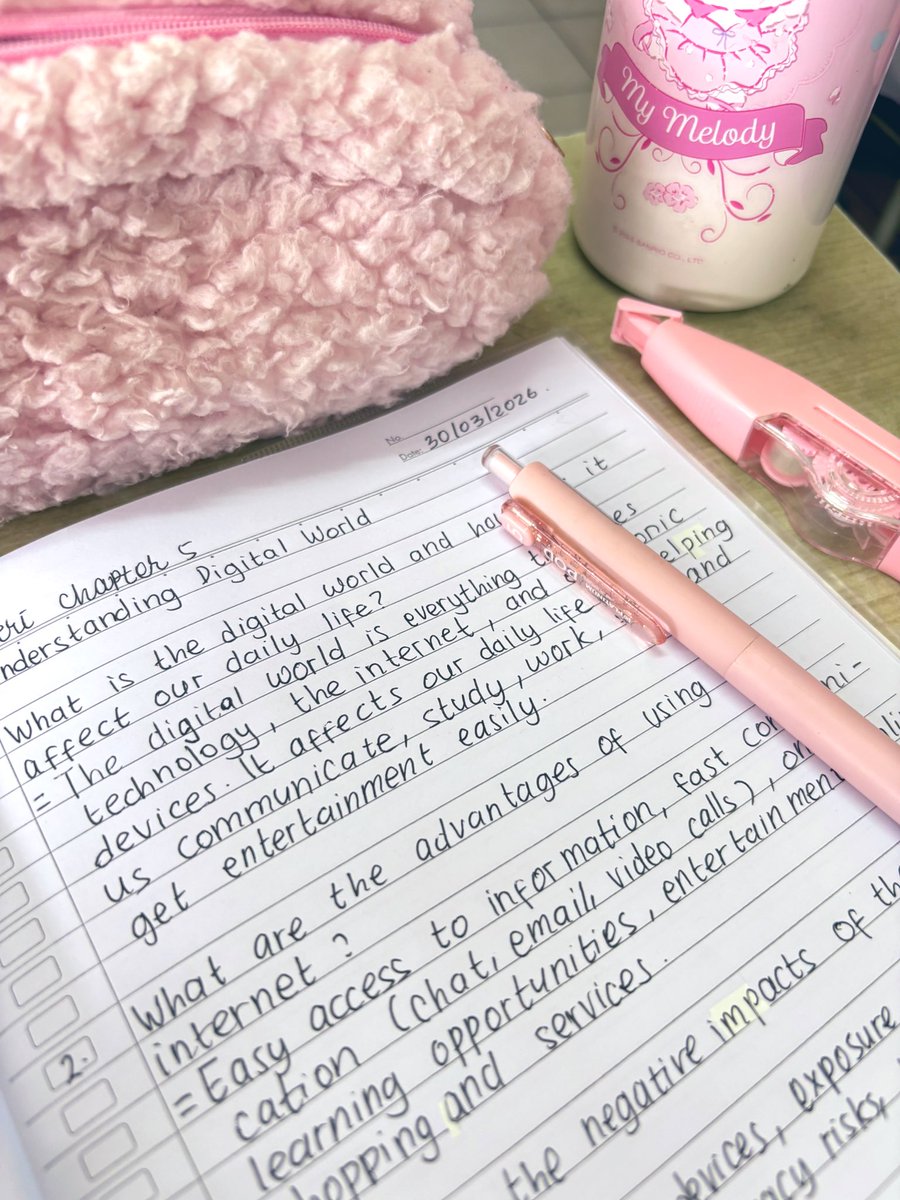 My Melody
No.
Date: 30/03/2026
chapter 5
nderstanding Digital World
What is the digital world and how it
affect our daily life?
= The digital world is everything
technology, the internet, and
devices. It affects our daily life helping
us communicate, study, work, and
get entertainment easily.
What are the advantages of using
internet?
2.
= Easy access to information, fast
cation (chat, email, video calls),
learning opportunities, entertainment
hopping and services.
the negative impacts of the
devices, exposure
risks,